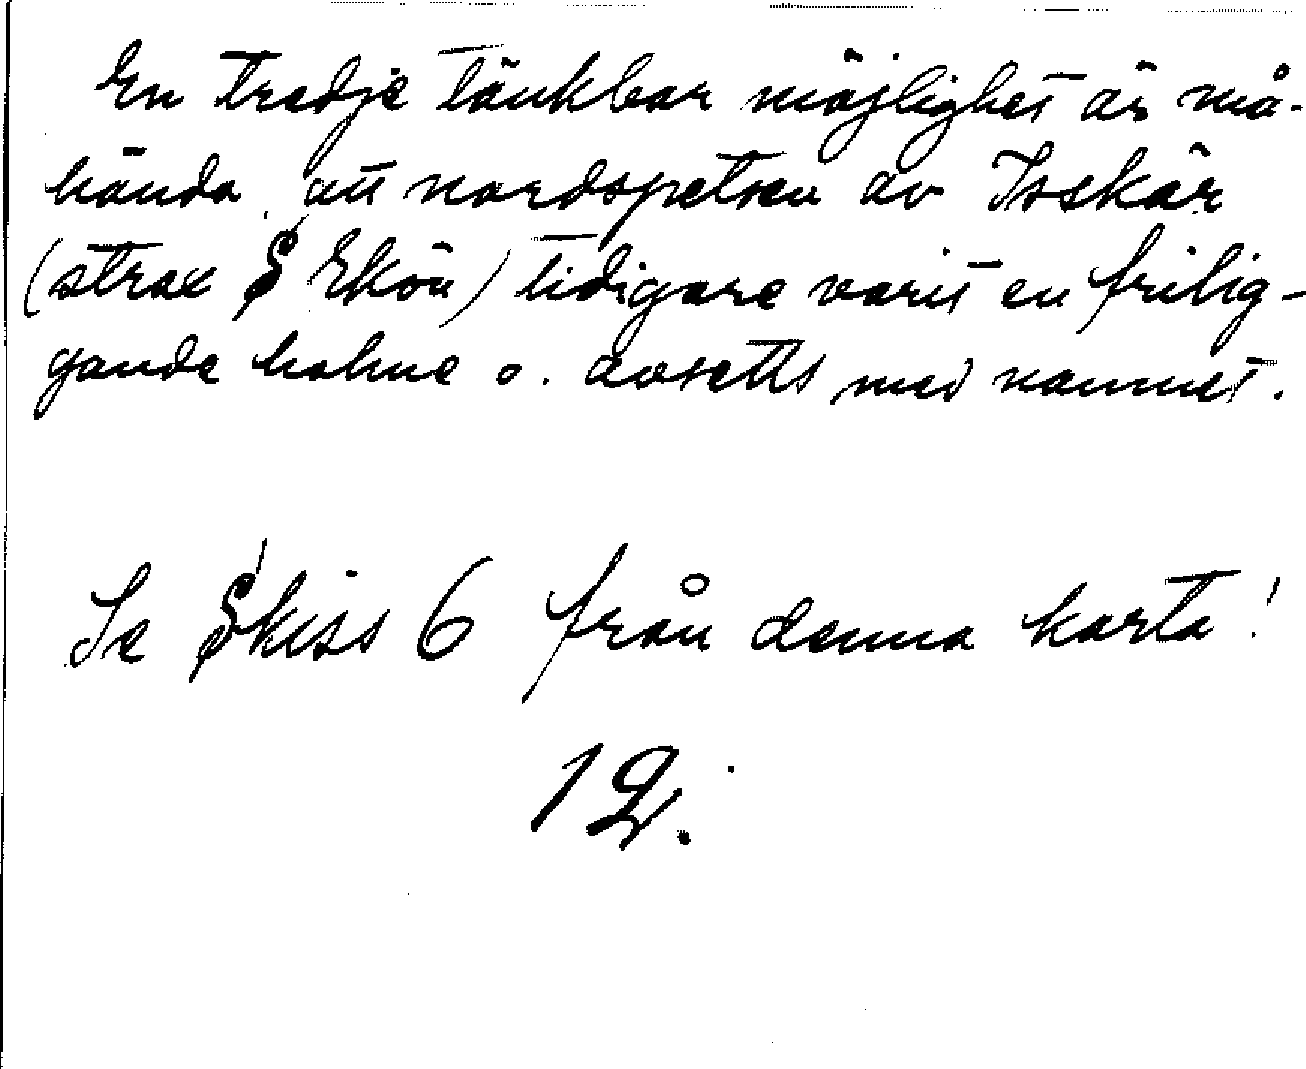 En tredje tänkbar möjlighet är må-
hända att nordspetsen av Isskär
(strax S Ekön) tidigare varit en frilig-
gande holme o. avsetts med namnet.
Se Skiss 6 från denna karta!
12.